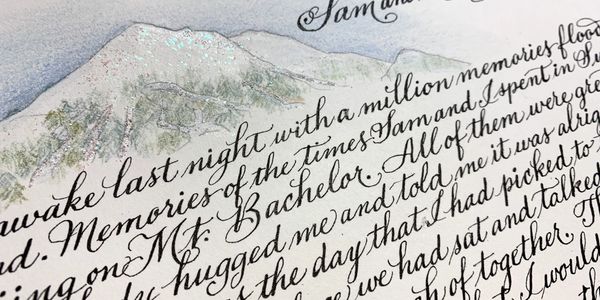 Sam and
awake last night with a million memories flood
nd. Memories of the times Sam and I spent in Su
iing on Mt. Bachelor. All of them were gre
hugged me and told me it was alrig
the day that I had picked to
we had sat and talked
h of together. Th
I would